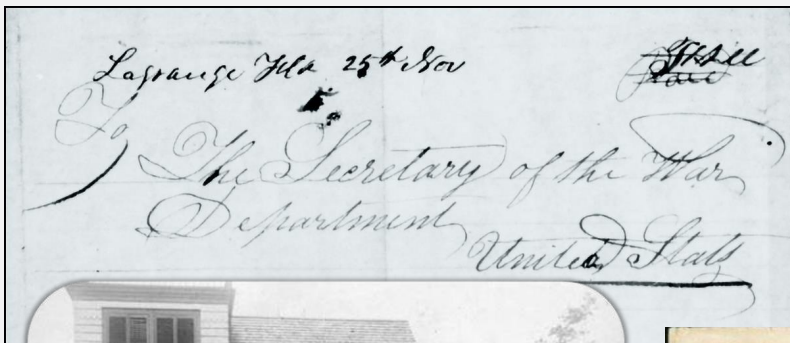 Lagrange Fla 25th Nov
Paid
To
The Secretary of the War
Department
United Stats